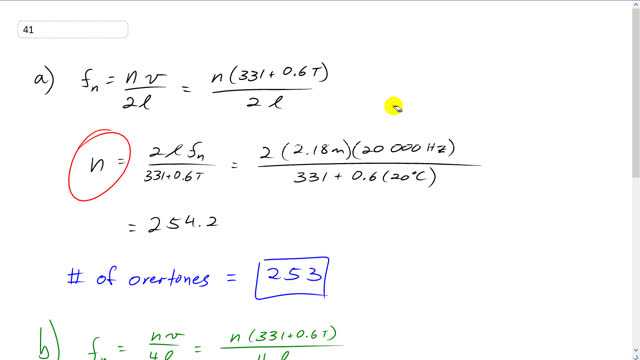 41
a) fₙ = nv/2ℓ = n(331+0.6T)/2ℓ
n = 2ℓfₙ/331+0.6T = 2(2.18m)(20 000 Hz)/331 + 0.6(20°C)
= 254.2
# of overtones = 253
b) fₙ = nv/4ℓ = n(331+0.6T)/4ℓ